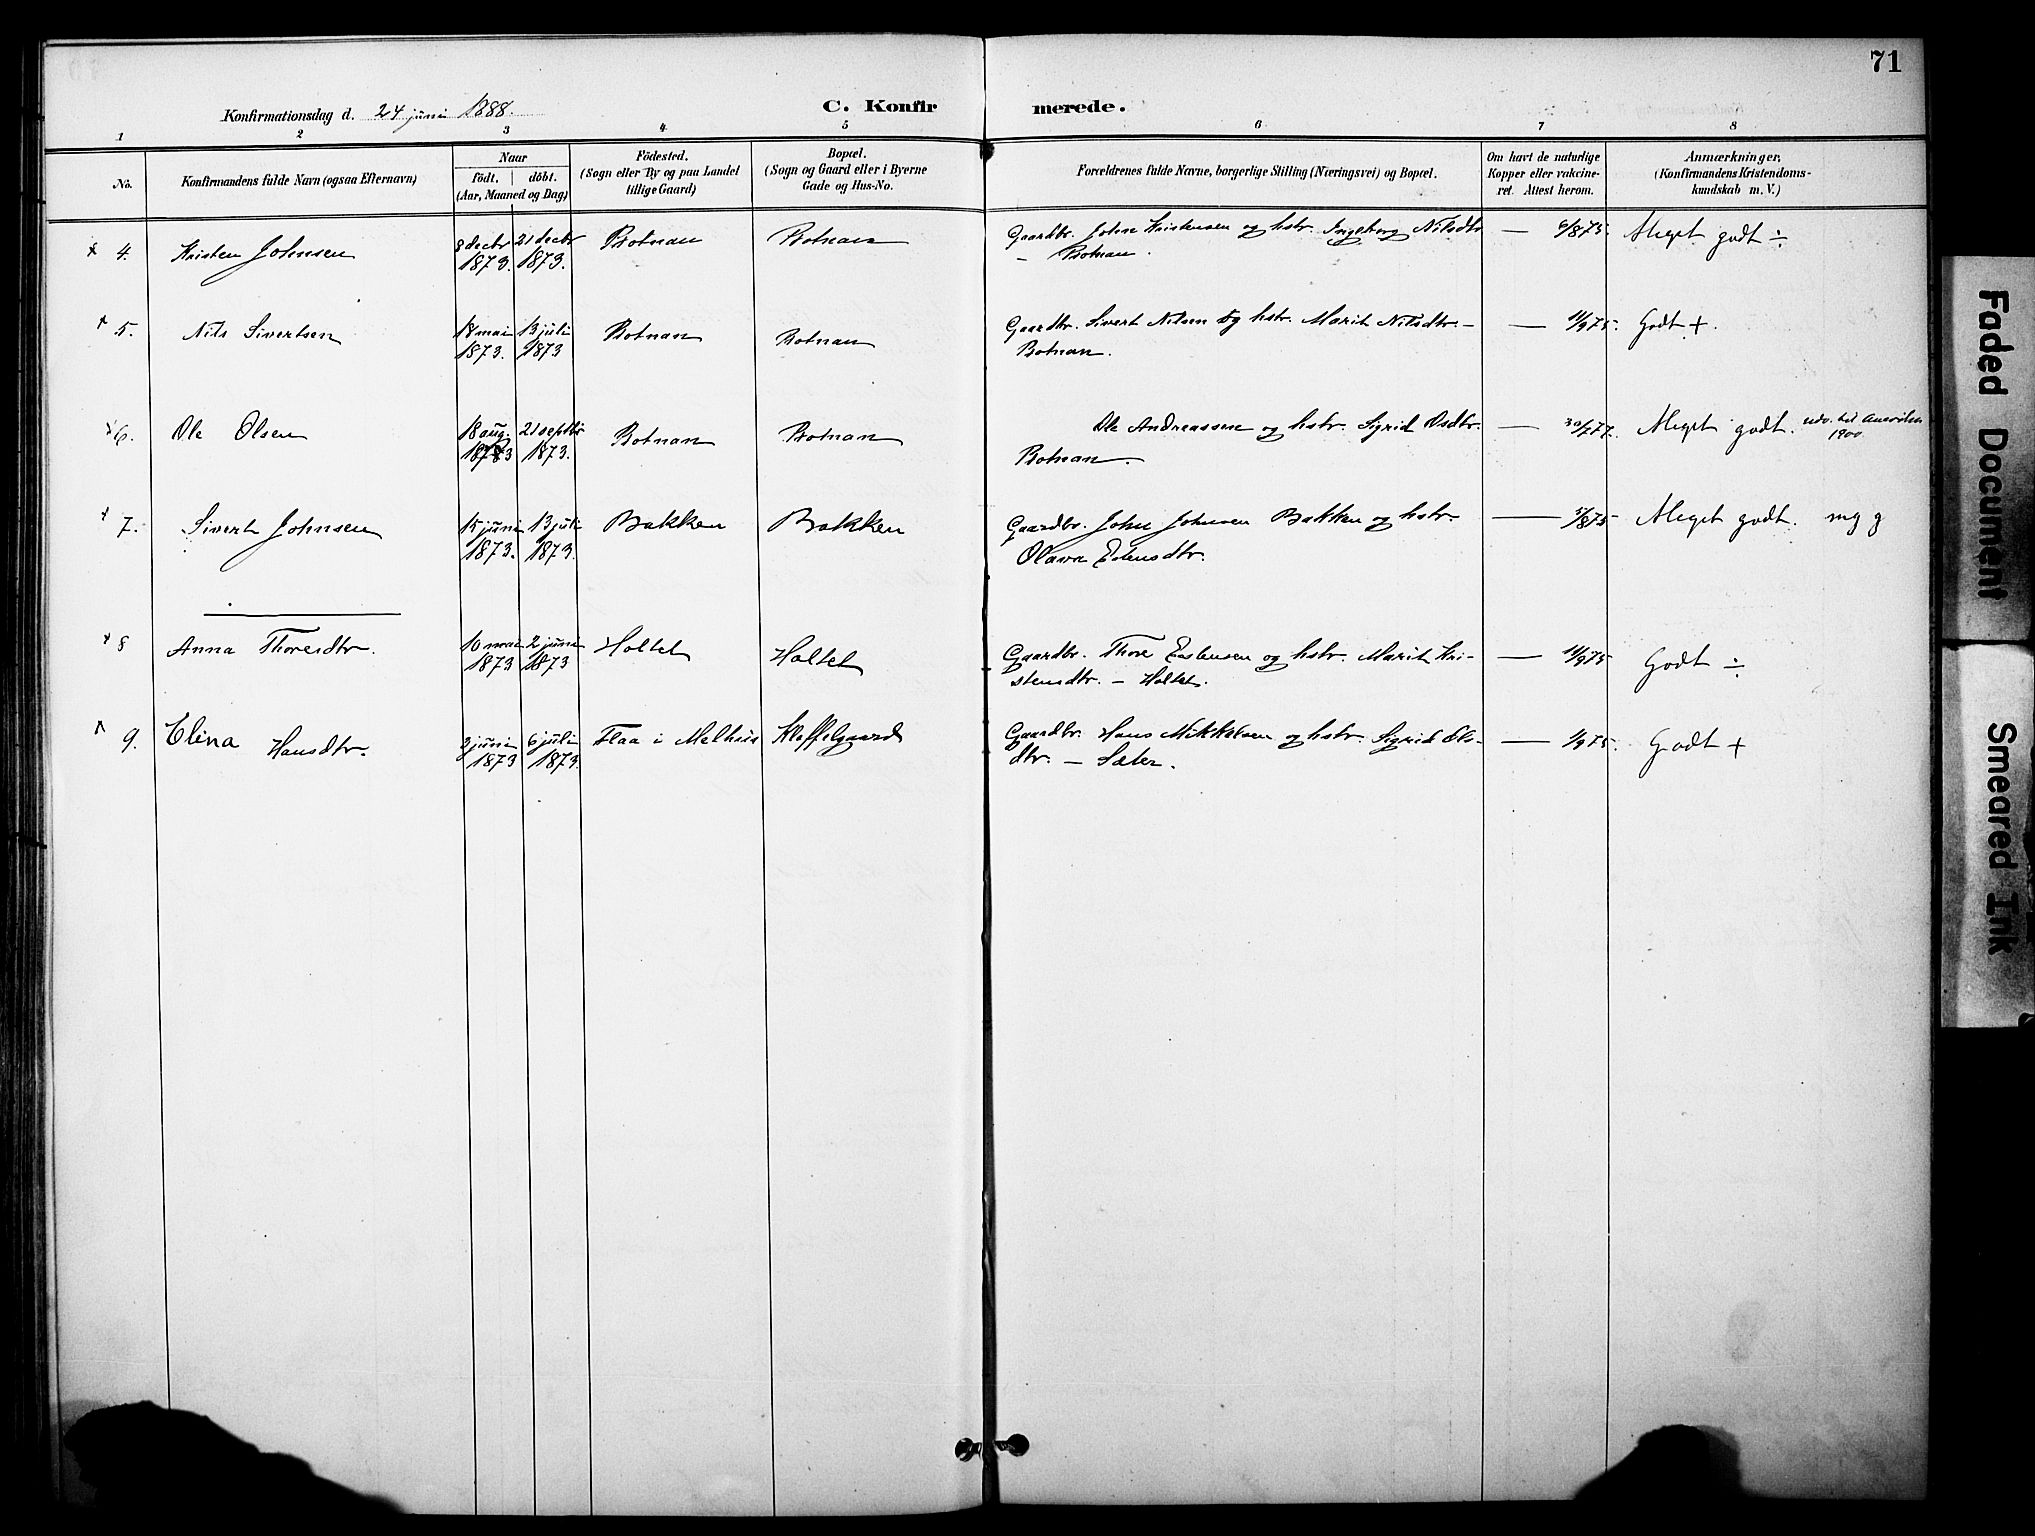 71
Konfirmationsdag d. 24 juni 1888.
C. Konfirmerede.
1 2 3 4 5 6 7 8
No.
Konfirmandens fulde Navn (ogsaa Efternavn)
Naar
födt, | döbt.
(Aar, Maaned og Dag)
Födested.
(Sogn eller By og paa Landet
tillige Gaard)
Bopæl.
(Sogn og Gaard eller i Byerne
Gade og Hus-No.
Forældrenes fulde Navne, borgerlige Stilling (Næringsvei) og Bopæl.
Om havt de naturlige
Kopper eller vakcine-
ret. Attest herom.
Anmærkninger.
(Konfirmandens Kristendoms-
kundskab m. V.)
4. Kristen Johnsen 8 decbr 21 decbr Botnan Botnan Gaardbr. John Kristensen og hstr. Ingeborg Nilsdtr — 6/8 75. Meget godt ÷
1873. 1873. – Botnan.
5. Nils Sivertsen 18 mai 13 juli Botnan Botnan Gaardbr. Sivert Nilsen og hstr. Marit Nilsdtr. – — 11/9 75. Godt +.
1873. 1873 Botnan.
6. Ole Olsen 18 aug. 21 septbr Botnan Botnan Ole Andreassen og hstr. Sigrid Olsdtr. — 30/7 77. Meget godt. udv. til Amerika
1873 1873. Botnan. 1900.
7. Sivert Johnsen 15 juni 13 juli Bakken Bakken Gaardbr. John Johnsen Bakken og hstr. — /8 75 Meget godt. mg g
1873. 1873. Olava Estensdtr.
8 Anna Thoresdtr. 10 mai 2 juni Holtet Holtet Gaardbr. Thore Estensen og hstr. Marit Kri- — 11/9 75 Godt ÷
1873 1873 stensdtr. – Holtet.
9. Elina Hansdtr. 2 juni 6 juli Flaa i Melhus Kleffelgaard Gaardbr. Hans Mikkelsen og hstr. Sigrid Ols- — 1/9 75. Godt +
1873 1873. dtr. – Sæter.
Faded Document
Smeared Ink